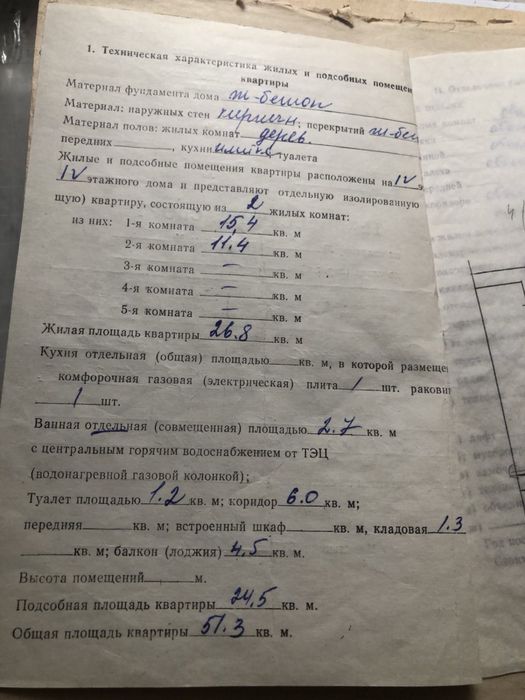 1. Техническая характеристика жилых и подсобных помещен
квартиры
Материал фундамента дома ж-бетон
Материал: наружных стен кирпичн. перекрытий ж-бет
Материал полов: жилых комнат дерев.
передних , кухни туалета
Жилые и подсобные помещения квартиры расположены на IV э
IV этажного дома и представляют отдельную изолированную
щую) квартиру, состоящую из 2 жилых комнат:
из них: 1-я комната 15,4 кв. м
2-я комната 11.4 кв. м
3-я комната — кв. м
4-я комната — кв. м
5-я комната — кв. м
Жилая площадь квартиры 26.8 кв. м
Кухня отдельная (общая) площадью кв. м, в которой размеще
комфорочная газовая (электрическая) плита 1 шт. ракови
1 шт.
Ванная отдельная (совмещенная) площадью 2.7 кв. м
с центральным горячим водоснабжением от ТЭЦ
(водонагревной газовой колонкой);
Туалет площадью 1.2 кв. м; коридор 6.0 кв. м;
передняя кв. м; встроенный шкаф кв. м, кладовая 1.3
кв. м; балкон (лоджия) 4,5 кв. м.
Высота помещений м.
Подсобная площадь квартиры 24,5 кв. м.
Общая площадь квартиры 51.3 кв. м.